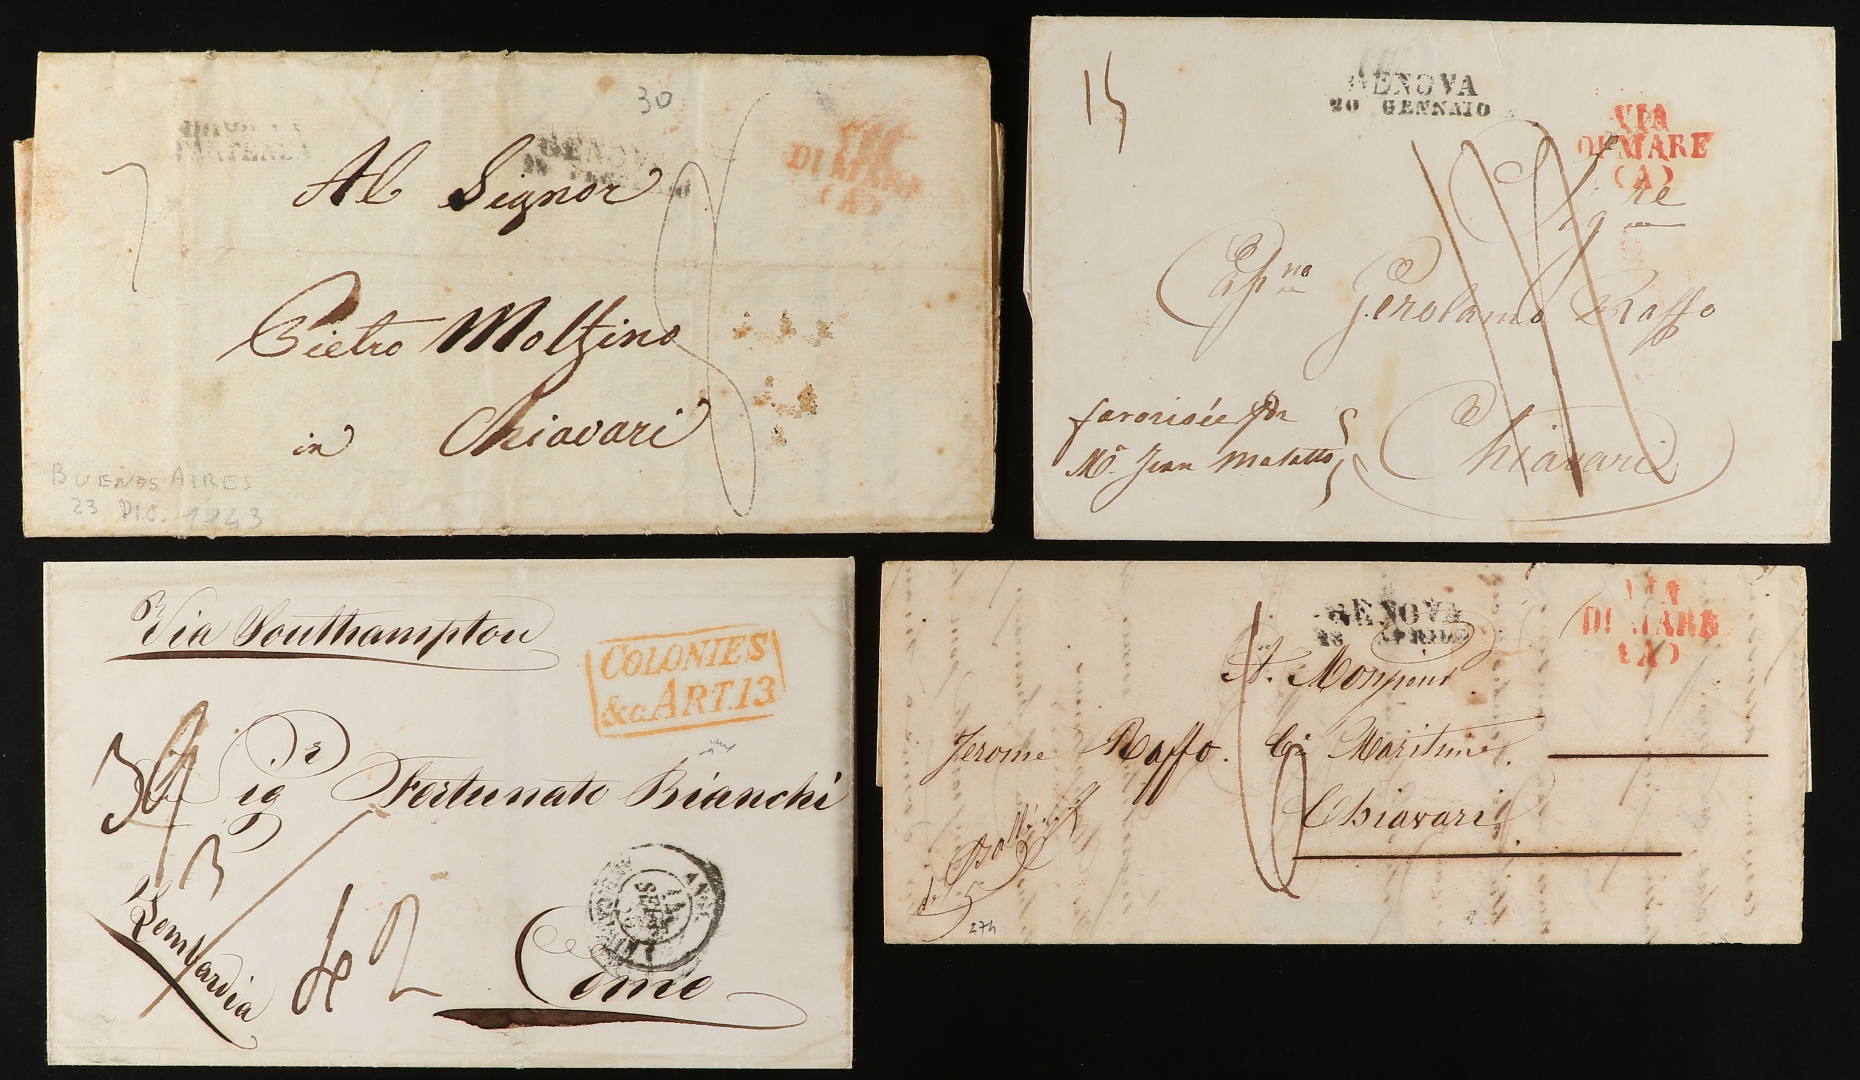 30
VIA
DI MARE
(A)
GENOVA
PARTENZA
Al Signor
Pietro Molfino
in Chiavari
BUENOS AIRES
23 DIC. 1843
15
GENOVA
20 GENNAIO
VIA
DI MARE
(A)
Gerolamo Raffo
favorisée par
Mr. Jean
Chiavari
Via Southampton
COLONIES
&c ART. 13
Sigr Fortunato Bianchi
3
Lombardia
42
Como
GENOVA
28 APRILE
VIA
DI MARE
(A)
A. Monsieur
Jerome Raffo. Cne Maritime.
Chiavari
274